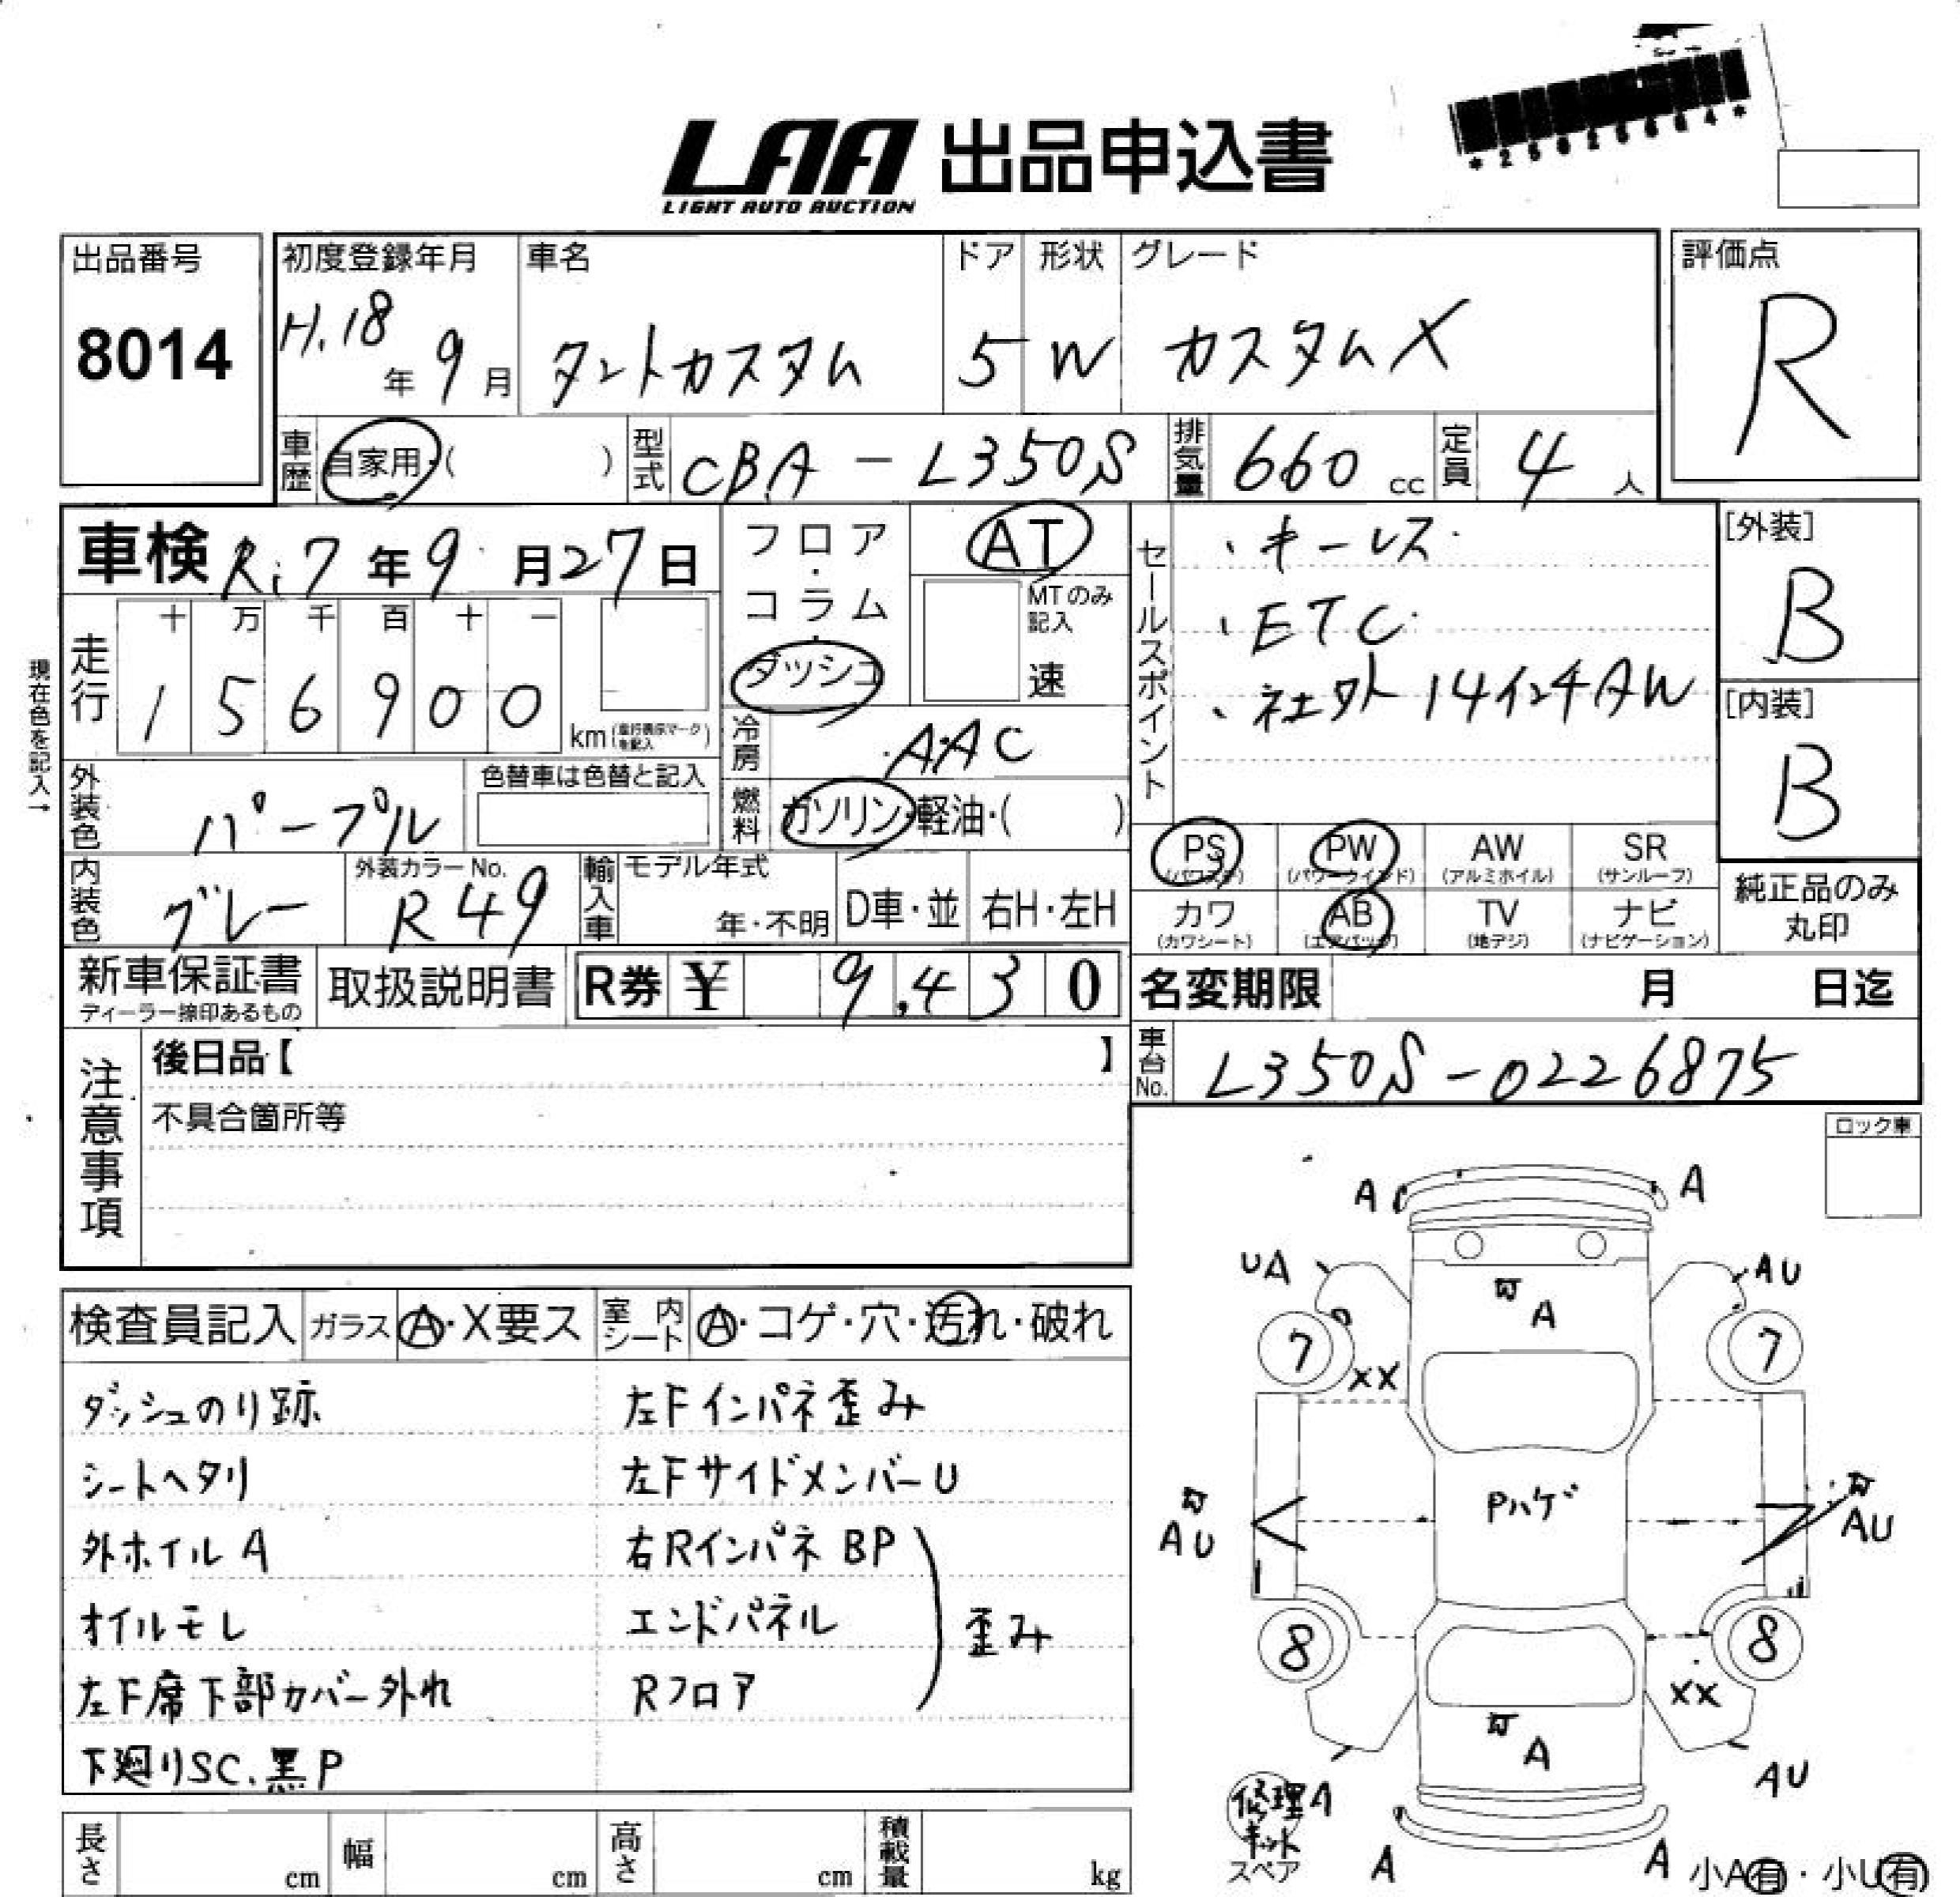 LAA 出品申込書
LIGHT AUTO AUCTION
出品番号
8014
初度登録年月
H.18年 9月
車名
タントカスタム
ドア
5
形状
W
グレード
カスタムX
評価点
R
車歴 自家用・( )
型式 CBA-L350S
排気量 660 cc
定員 4人
車検 R.7年9月27日
フロア・コラム・ダッシュ
AT
MTのみ記入
速
セールスポイント
・キーレス
・ETC
・社外14インチAW
[外装]
B
[内装]
B
現在色を記入→
走行
十 万 千 百 十 一
1 5 6 9 0 0
km
冷房 AAC
燃料 ガソリン・軽油・( )
外装色 パープル
色替車は色替と記入
内装色 グレー
外装カラーNo.
R49
輸入車
モデル年式
年・不明
D車・並
右H・左H
PS
(パワステ)
PW
(パワーウインド)
AW
(アルミホイル)
SR
(サンルーフ)
カワ
(カワシート)
AB
(エアバッグ)
TV
(地デジ)
ナビ
(ナビゲーション)
純正品のみ
丸印
新車保証書
ディーラー捺印あるもの
取扱説明書
R券 ¥ 9,430
名変期限 月 日迄
注意事項
後日品【 】
不具合箇所等
車台No. L350S-0226875
ロック車
検査員記入
ガラス A・X要ス
室内シート A・コゲ・穴・汚れ・破れ
ダッシュのり跡
シートヘタリ
外ホイルA
オイルモレ
左F席下部カバー外れ
下廻りSC.黒P
左Fインパネ歪み
左FサイドメンバーU
右RインパネBP
エンドパネル
Rフロア
歪み
A
A
UA
AU
A
7
7
XX
AU
Pハゲ
AU
8
8
XX
A
AU
修理キット
A
スペア
A
A
小A有・小U有
長さ cm
幅 cm
高さ cm
積載量 kg